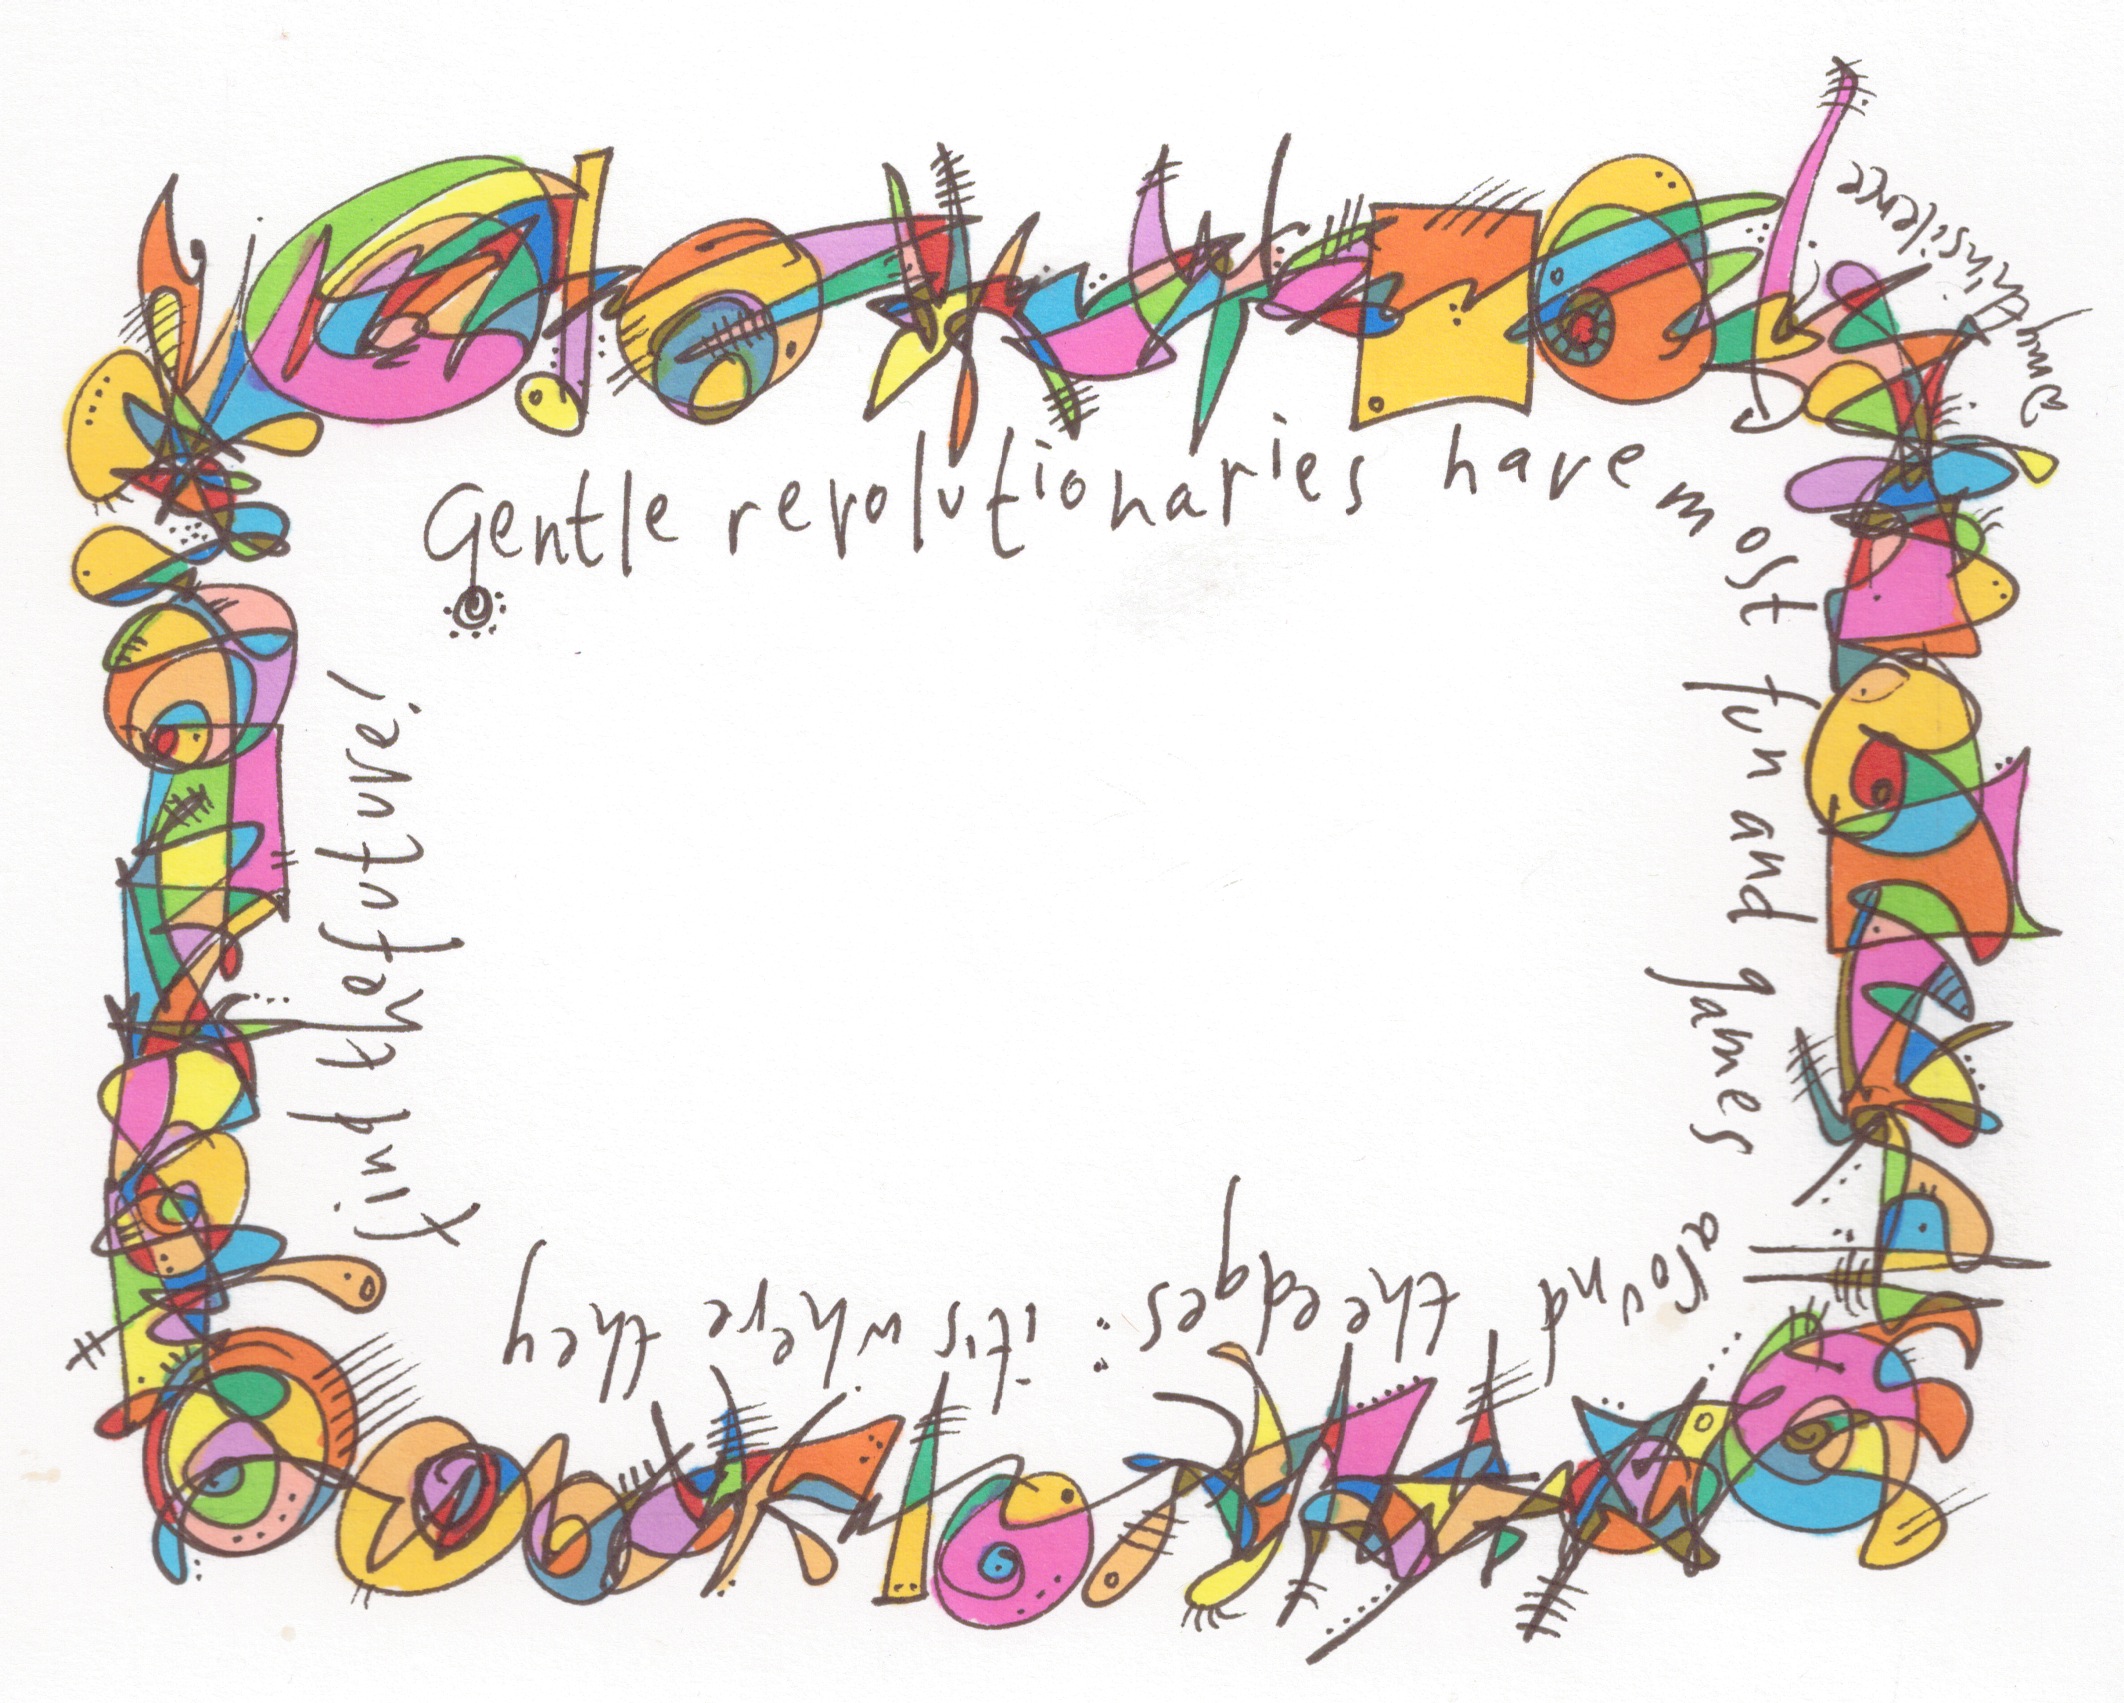 Gentle revolutionaries have most
fun and games
around the edges: it's where they
find the future!